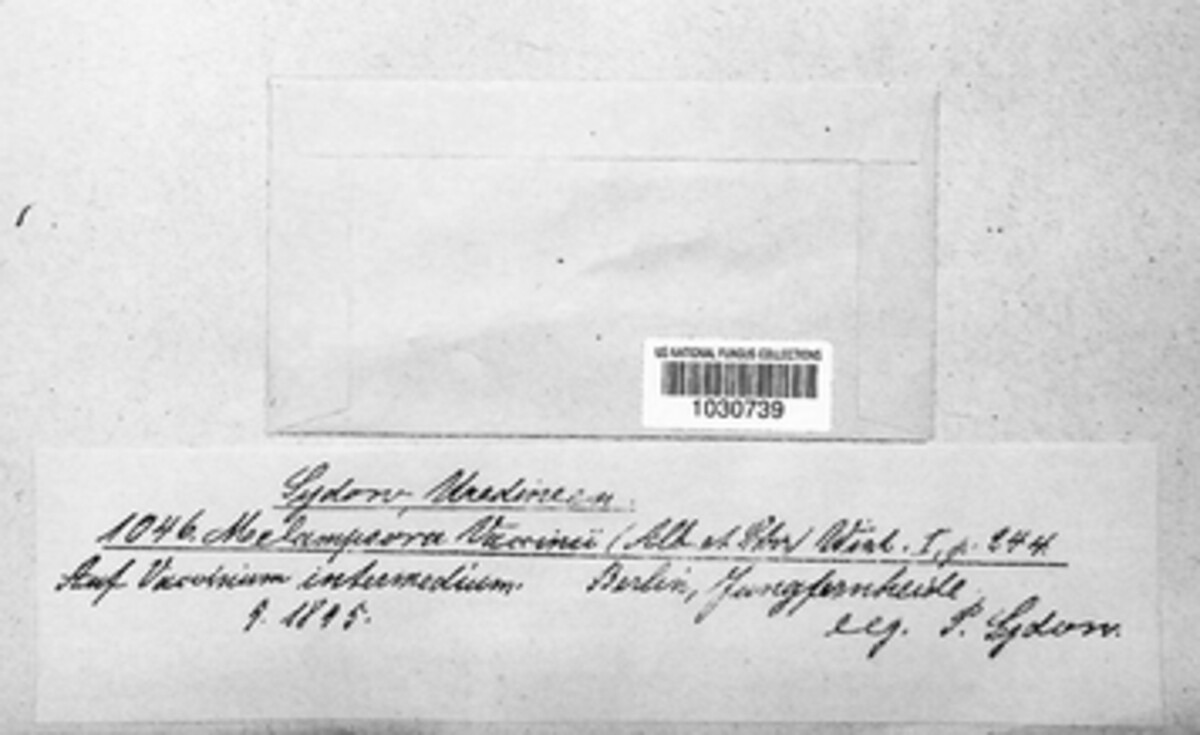 US NATIONAL FUNGUS COLLECTIONS
1030739
Sydow, Uredineen.
1046. Melampsora Vaccinii (Alb. et Schw) Wint. I, p. 244.
Auf Vaccinium intermedium. Berlin, Jungfernheide
9. 1895. leg. P. Sydow.